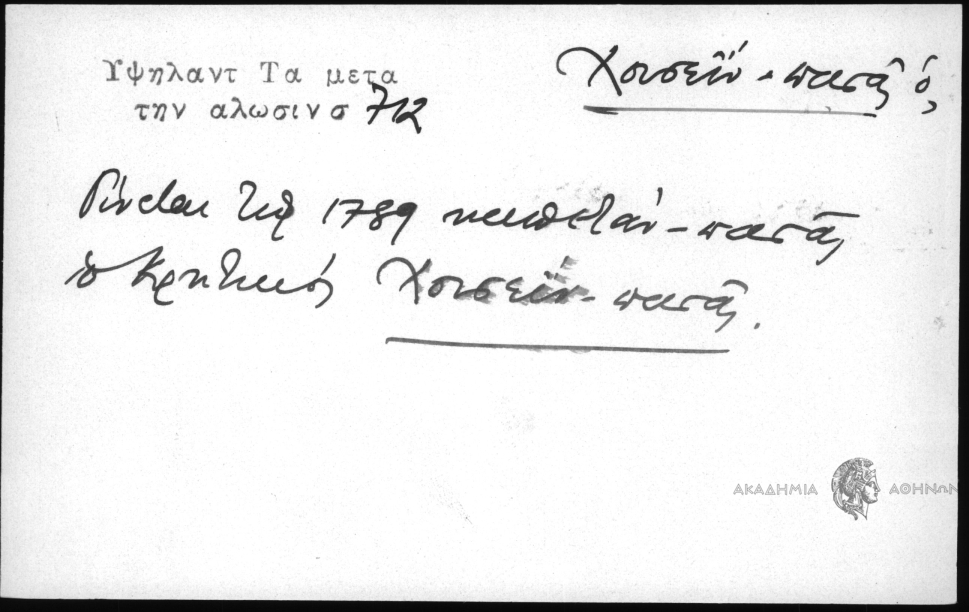 Υψηλαντ Τα μετα
την αλωσινσ 712
Χουσεΐν - πασᾶς ὁ,
Γίνεται τῷ 1789 καπετάν - πασᾶς
ὁ Κρητικός Χουσεΐν - πασᾶς.
ΑΚΑΔΗΜΙΑ ΑΘΗΝΩΝ